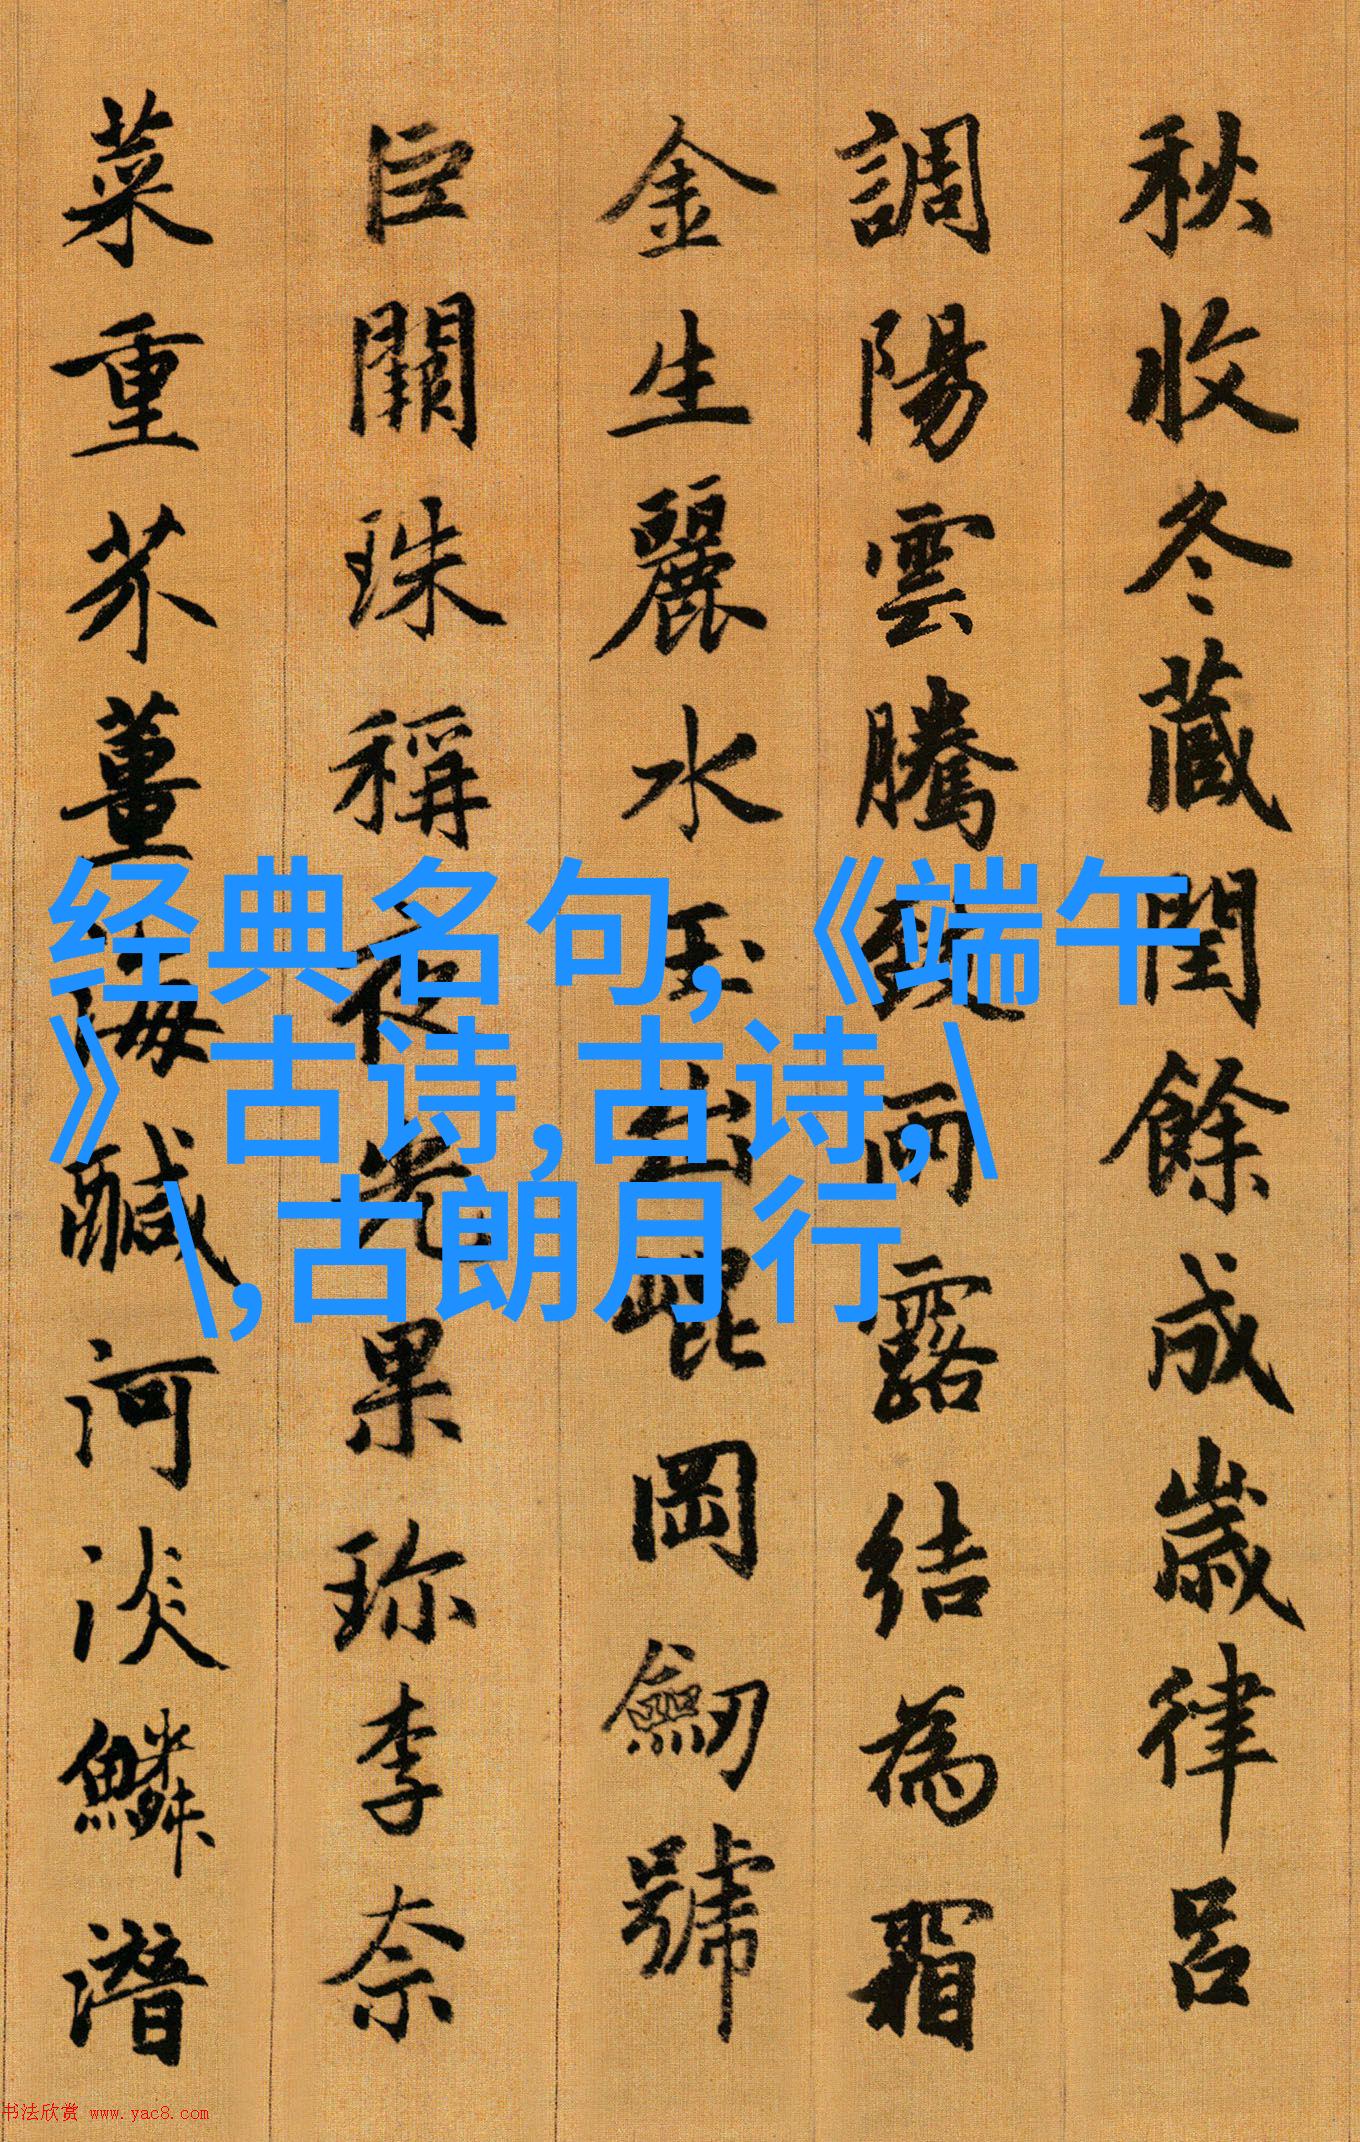 秋收冬藏閏餘成歲律呂
調陽雲騰致雨露結為霜
金生麗水玉出崐岡劒號
巨闕珠稱夜光果珎李柰
菜重芥薑海鹹河淡鱗潛
经典名句,《端午
》古诗,古诗,\
\,古朗月行
书法欣赏 www.yac8.com